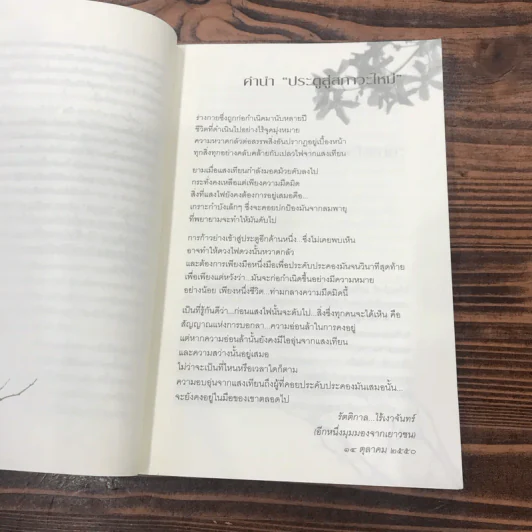 คำนำ "ประตูสู่สภาวะใหม่"
ร่างกายซึ่งถูกก่อกำเนิดมานับหลายปี
ชีวิตที่ดำเนินไปอย่างไร้จุดมุ่งหมาย
ความหวาดกลัวต่อสรรพสิ่งอันปรากฏอยู่เบื้องหน้า
ทุกสิ่งทุกอย่างคลับคล้ายกับเปลวไฟจากแสงเทียน
ยามเมื่อแสงเทียนกำลังมอดม้วยดับลงไป
กระทั่งคงเหลือแต่เพียงความมืดมิด
สิ่งที่แสงไฟยังคงต้องการอยู่เสมอคือ...
เกราะกำบังเล็กๆ ซึ่งจะคอยปกป้องมันจากลมพายุ
ที่พยายามจะทำให้มันดับไป
การก้าวย่างเข้าสู่ประตูอีกด้านหนึ่ง...ซึ่งไม่เคยพบเห็น
อาจทำให้ดวงไฟดวงนั้นหวาดกลัว
และต้องการเพียงมือหนึ่งมือเพื่อประคับประคองมันจนวินาทีสุดท้าย
เพื่อเพียงแต่หวังว่า...มันจะก่อกำเนิดขึ้นอย่างมีความหมาย
อย่างน้อย เพียงหนึ่งชีวิต...ท่ามกลางความมืดมิดนี้
เป็นที่รู้กันดีว่า...ก่อนแสงไฟนั้นจะดับไป...สิ่งซึ่งทุกคนจะได้เห็น คือ
สัญญาณแห่งการบอกลา...ความอ่อนล้าในการคงอยู่
แต่หากความอ่อนล้านั้นยังคงมีไออุ่นจากแสงเทียน
และความสว่างนั้นอยู่เสมอ
ไม่ว่าจะเป็นที่ไหนหรือเวลาใดก็ตาม
ความอบอุ่นจากแสงเทียนถึงผู้ที่คอยประคับประคองมันเสมอนั้น...
จะยังคงอยู่ในมือของเขาตลอดไป
รัตติกาล...ไร้เงาจันทร์
(อีกหนึ่งมุมมองจากเยาวชน)
๑๔ ตุลาคม ๒๕๕๐